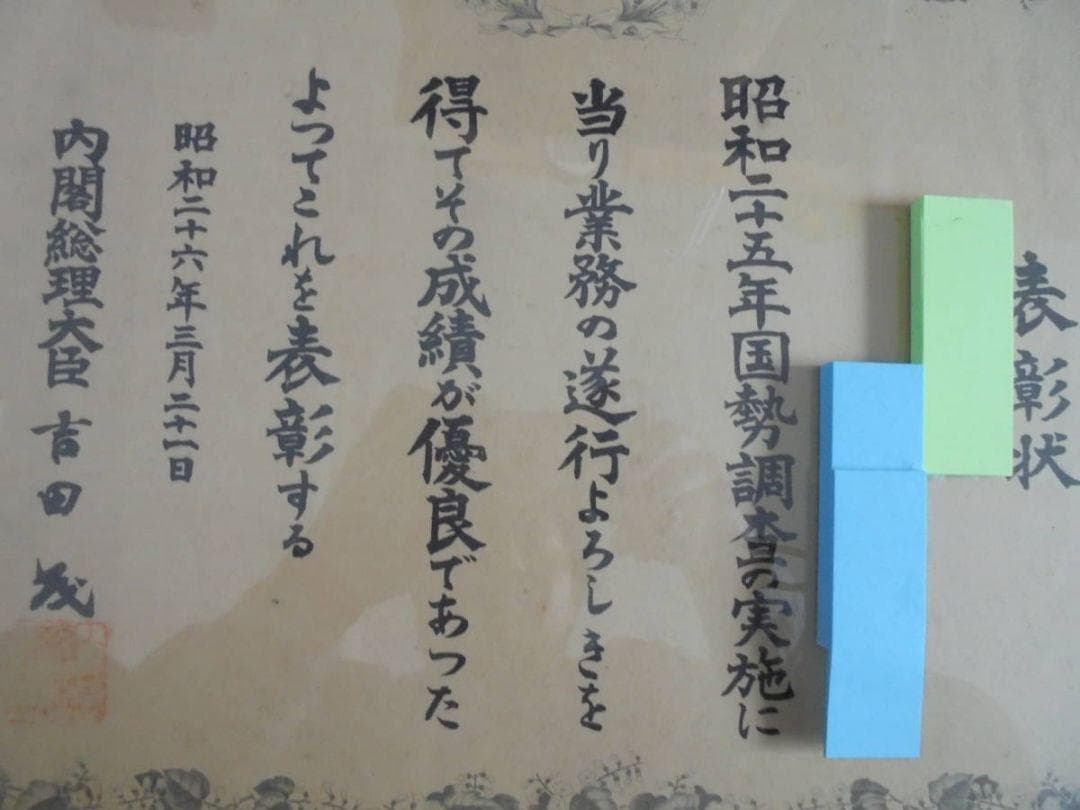 表彰状
昭和二十五年国勢調査の実施に
当り業務の遂行よろしきを
得てその成績が優良であつた
よつてこれを表彰する
昭和二十六年三月二十一日
内閣総理大臣 吉田 茂